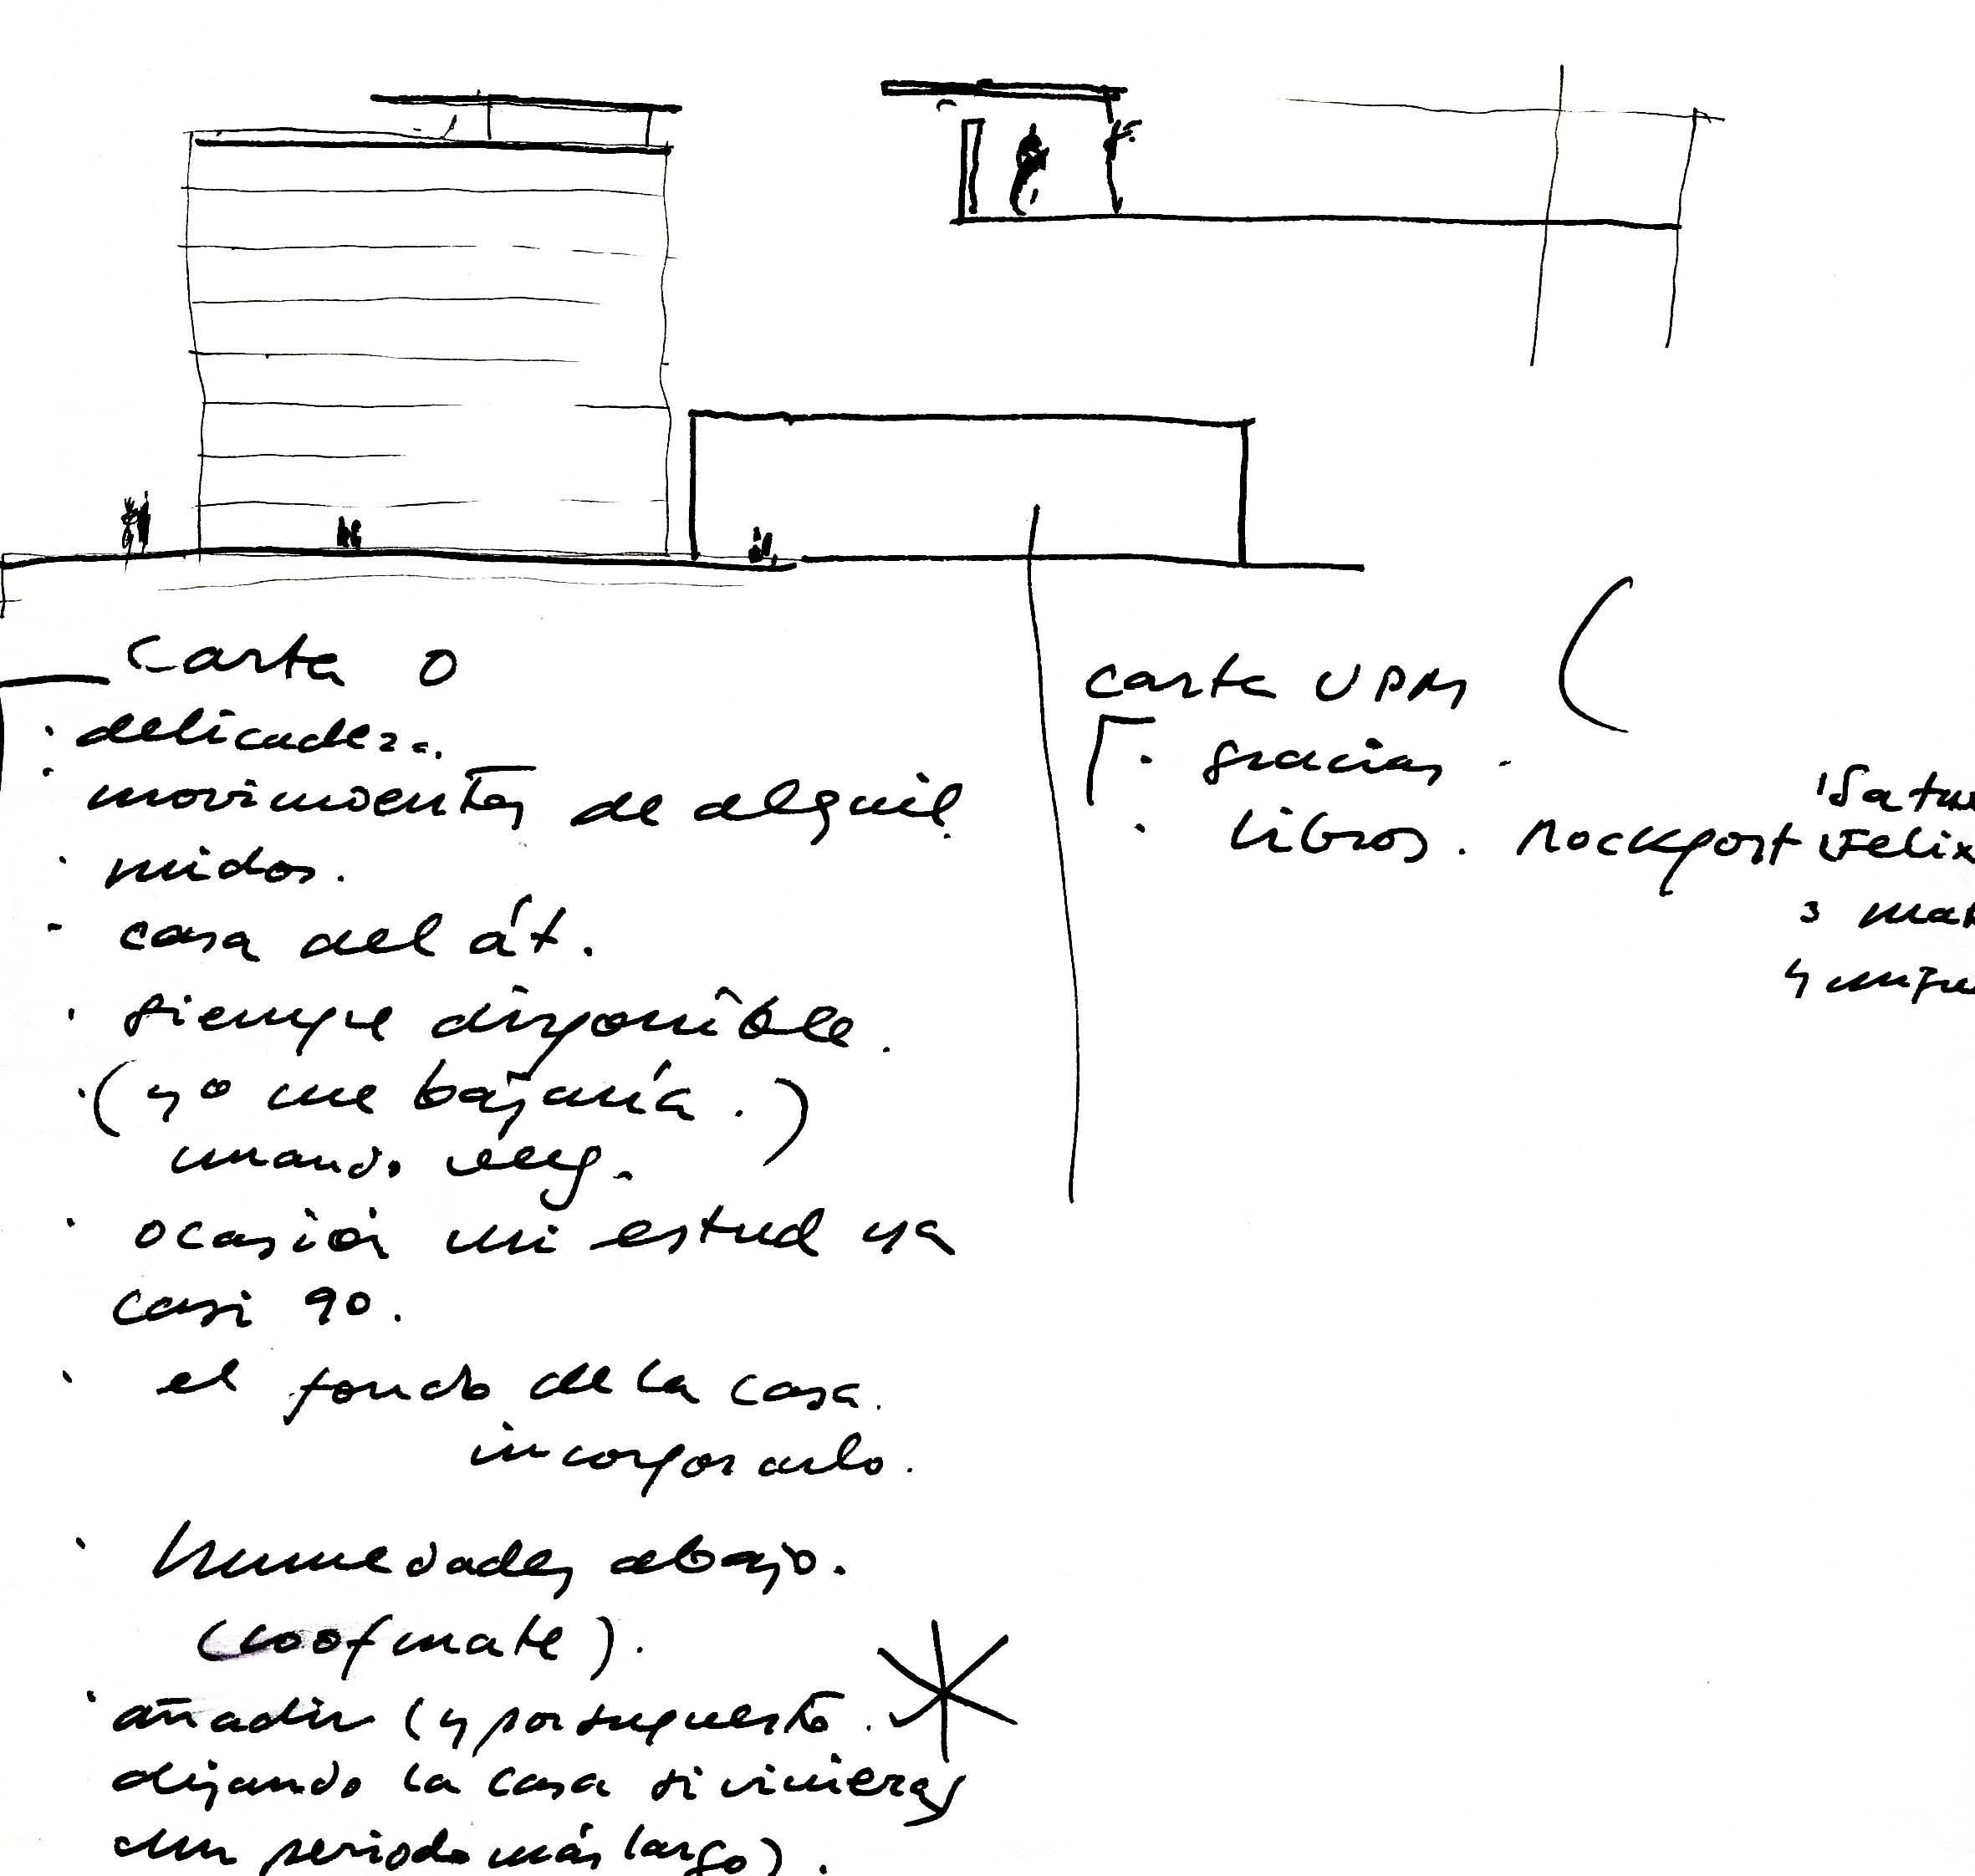 Carta O
· delicadeza.
· movimientos de alquil.
· ruidos.
- casa del át.
· siempre disponible.
· (yo me bajaría.)
cuando
· ocasión mi estud ya
casi 90.
· el fondo de la casa.
incorporarlo.
· humedades abajo.
(roofmate).
· añadir (y por supuesto.
dejando la casa si vinieras
un periodo más largo).
carta UPM (
· gracias.
· Libros. Rockport
Felix
3
4